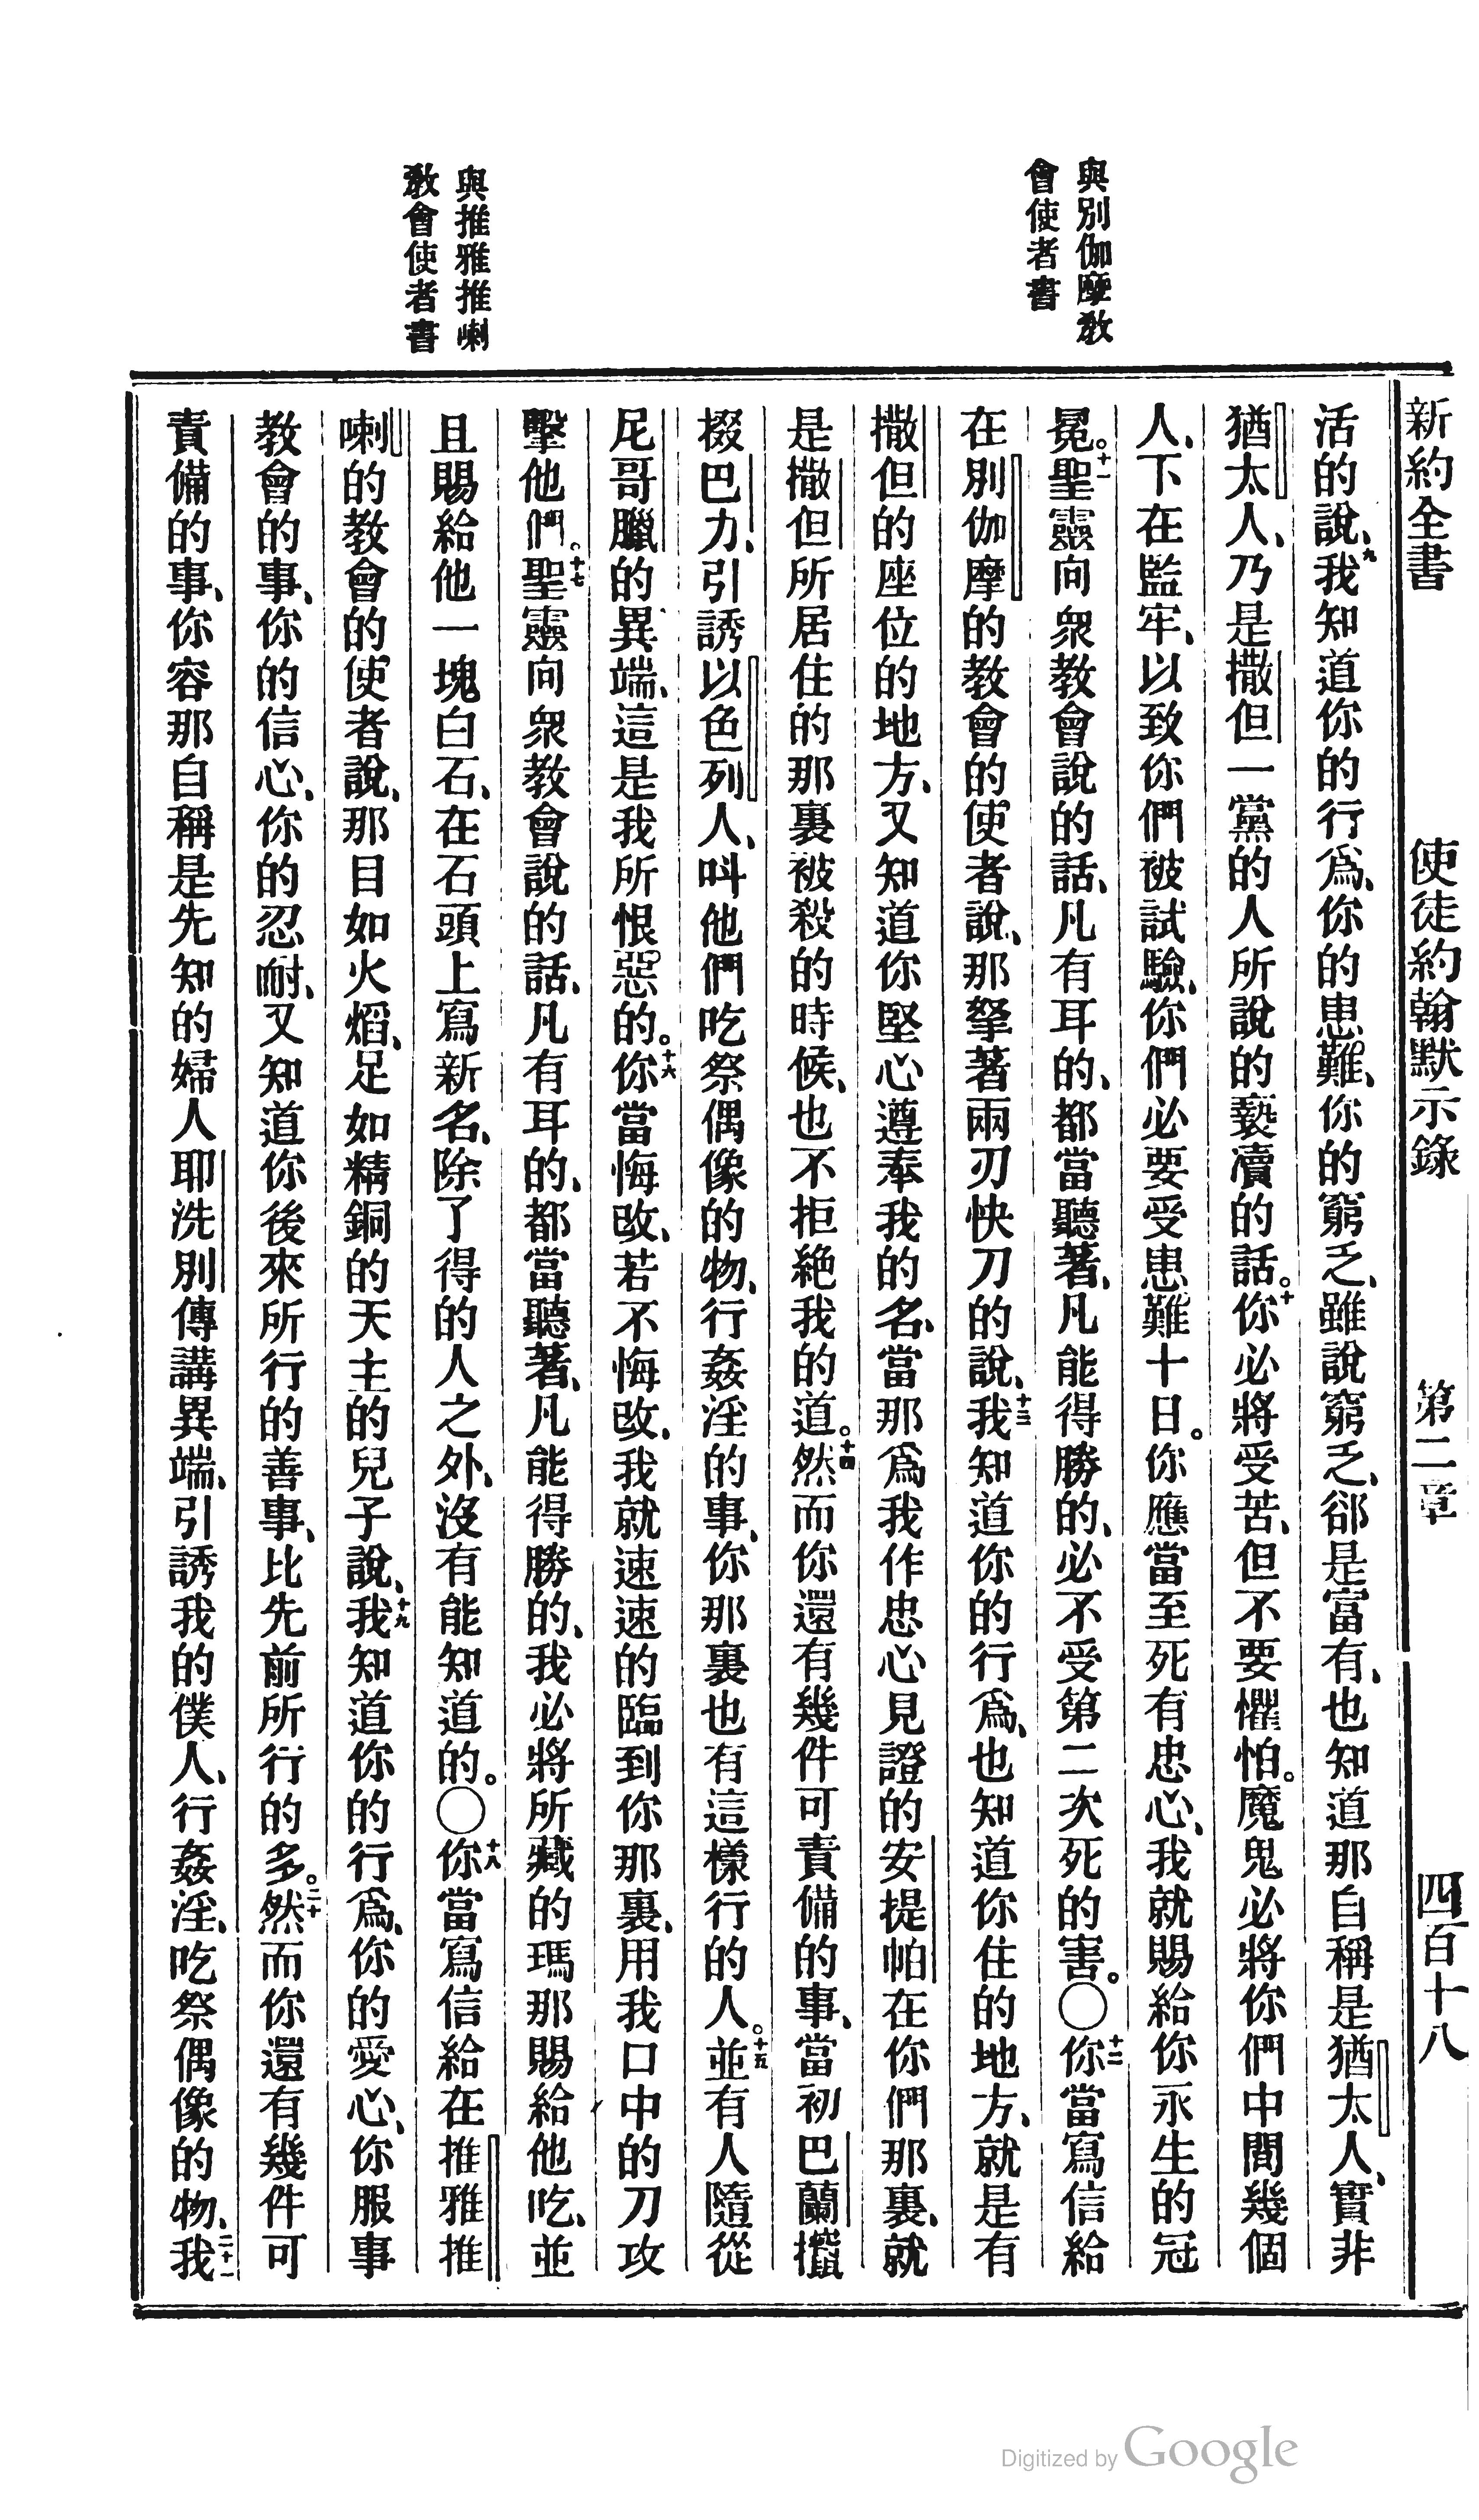 新約全書 使徒約翰默示錄 第二章 四百十八
與別伽摩教
會使者書
與推雅推喇
教會使者書
活的說、九我知道你的行爲、你的患難、你的窮乏、雖說窮乏、卻是富有、也知道那自稱是猶太人、實非
猶太人、乃是撒但一黨的人所說的褻瀆的話。十你必將受苦、但不要懼怕。魔鬼必將你們中間幾個
人、下在監牢、以致你們被試驗、你們必要受患難十日。你應當至死有忠心、我就賜給你永生的冠
冕。十一聖靈向衆教會說的話、凡有耳的、都當聽著、凡能得勝的、必不受第二次死的害。〇十二你當寫信給
在別伽摩的教會的使者說、那拏著兩刃快刀的說、十三我知道你的行爲、也知道你住的地方、就是有
撒但的座位的地方、又知道你堅心遵奉我的名、當那爲我作忠心見證的安提帕在你們那裏、就
是撒但所居住的那裏被殺的時候、也不拒絶我的道。十四然而你還有幾件可責備的事、當初巴蘭攛
掇巴力、引誘以色列人、呌他們吃祭偶像的物、行姦淫的事、你那裏也有這樣行的人。十五並有人隨從
尼哥臘的異端、這是我所恨惡的。十六你當悔改、若不悔改、我就速速的臨到你那裏、用我口中的刀攻
擊他們。十七聖靈向衆教會說的話、凡有耳的、都當聽著、凡能得勝的、我必將所藏的瑪那賜給他吃、並
且賜給他一塊白石、在石頭上寫新名、除了得的人之外、沒有能知道的。〇十八你當寫信給在推雅推
喇的教會的使者說、那目如火熖、足如精銅的天主的兒子說、十九我知道你的行爲、你的愛心、你服事
教會的事、你的信心、你的忍耐、又知道你後來所行的善事、比先前所行的多。二十然而你還有幾件可
責備的事、你容那自稱是先知的婦人耶洗別傳講異端、引誘我的僕人、行姦淫、吃祭偶像的物、二十一我
Digitized by Google